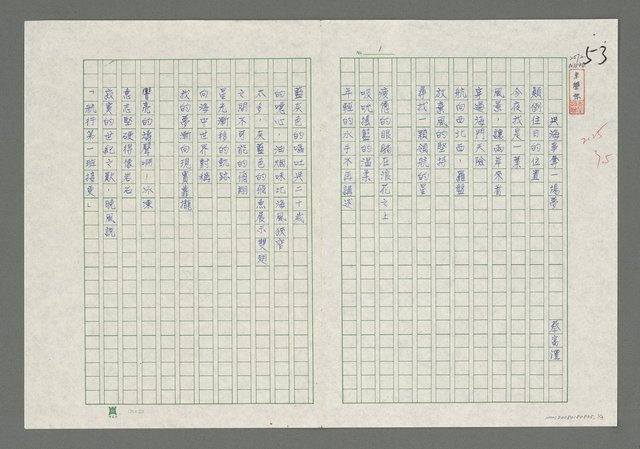 No. 1
53
與海爭奪一場夢
蔡富澧
顛倒住日的位置
今夜我是一葉
風景，讓兩年來者
穿過海門天險
航向西北西，羅盤
放棄風的堅持
尋找一顆領航的星
疲憊的眼睛在浪花之上
吸吮搖籃的溫柔
年輕的水手不再講述
藍灰色的嘔吐與二十歲
的噁心，油煙味比海風狹窄
太多，灰藍色的飛魚展示雙翅
之間不可能的飛翔
星光漸移的軌跡
向海中世界對稱
我的夢漸向現實靠攏
嘹亮的濤聲啊！冰凍
意志堅硬得像岩石
寂寞的世紀之歌，晚風說
「航行第一班接更」
2.25